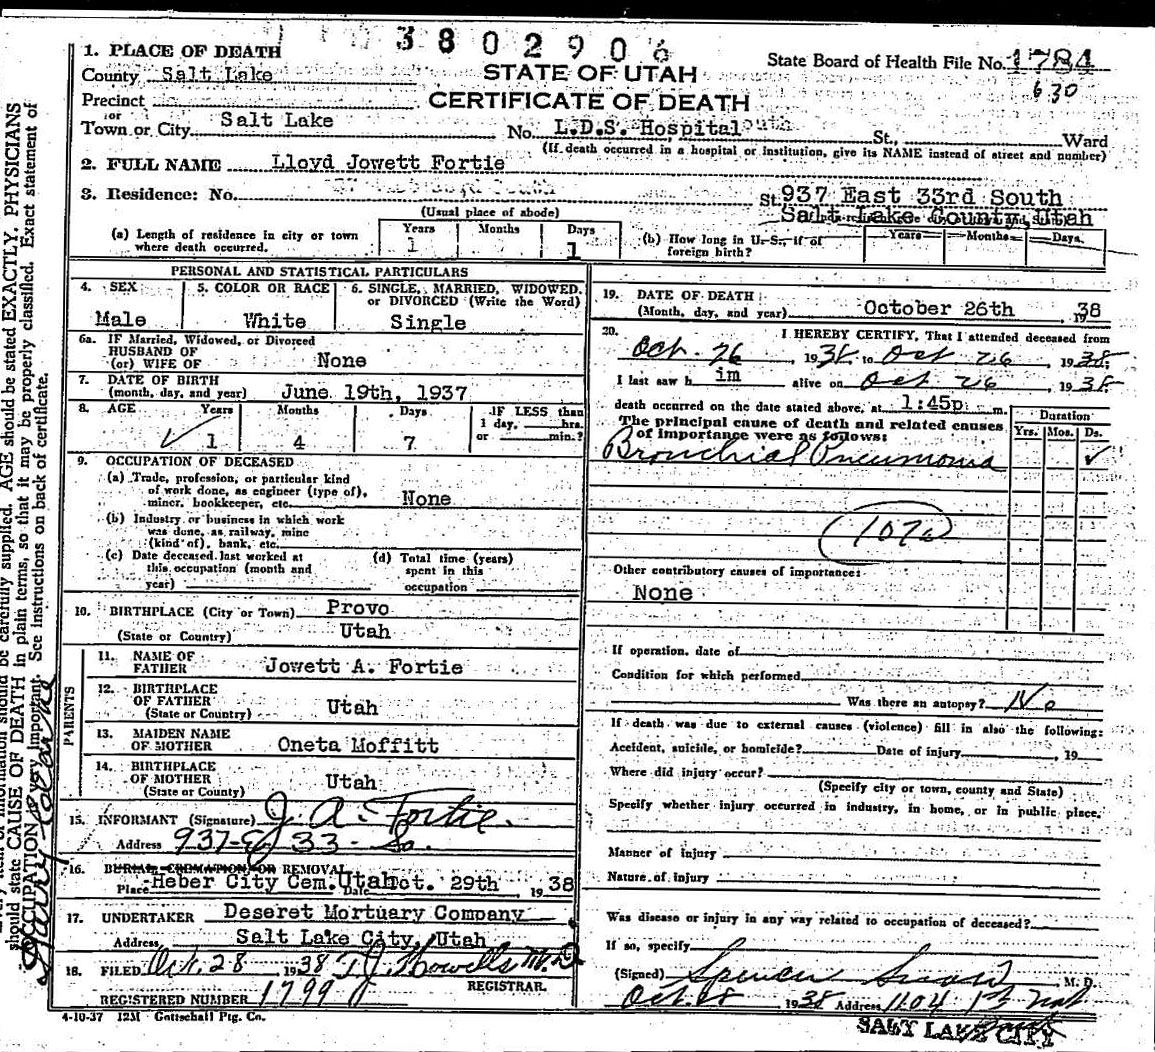 3802906
1. PLACE OF DEATH
County Salt Lake
STATE OF UTAH
State Board of Health File No. 1784
630
Precinct
CERTIFICATE OF DEATH
or
Town or City Salt Lake No. L.D.S. Hospital St., Ward
(If death occurred in a hospital or institution, give its NAME instead of street and number)
2. FULL NAME Lloyd Jowett Fortie
3. Residence: No. St. 937 East 33rd South
(Usual place of abode) Salt Lake County, Utah
(a) Length of residence in city or town where death occurred. Years 1 Months Days 1
(b) How long in U. S., if of foreign birth? Years Months Days
PERSONAL AND STATISTICAL PARTICULARS
4. SEX Male
5. COLOR OR RACE White
6. SINGLE, MARRIED, WIDOWED, or DIVORCED (Write the Word) Single
6a. IF Married, Widowed, or Divorced
HUSBAND OF
(or) WIFE OF None
7. DATE OF BIRTH
(month, day, and year) June 19th, 1937
8. AGE Years Months Days IF LESS than
1 day, hrs.
or min.?
1 4 7
9. OCCUPATION OF DECEASED
(a) Trade, profession, or particular kind
of work done, as engineer (type of),
miner, bookkeeper, etc. None
(b) Industry or business in which work
was done, as railway, mine
(kind of), bank, etc.
(c) Date deceased last worked at
this occupation (month and
year)
(d) Total time (years)
spent in this
occupation
10. BIRTHPLACE (City or Town) Provo
(State or Country) Utah
PARENTS
11. NAME OF
FATHER Jowett A. Fortie
12. BIRTHPLACE
OF FATHER
(State or Country) Utah
13. MAIDEN NAME
OF MOTHER Oneta Moffitt
14. BIRTHPLACE
OF MOTHER
(State or County) Utah
15. INFORMANT (Signature) J. A. Fortie.
Address 937-E 33-So.
16. BURIAL, CREMATION, OR REMOVAL
Place Heber City Cem. Utah Date Oct. 29th 1938
17. UNDERTAKER Deseret Mortuary Company
Address Salt Lake City, Utah
18. FILED Oct. 28 1938 T. J. Howells M.D.
REGISTRAR.
REGISTERED NUMBER 1799
4-10-37 12M Gottschall Ptg. Co.
19. DATE OF DEATH
(Month, day, and year) October 26th 1938
20. I HEREBY CERTIFY, That I attended deceased from
Oct. 26, 1938 to Oct 26, 1938;
I last saw him alive on Oct 26, 1938
death occurred on the date stated above, at 1:45p m.
The principal cause of death and related causes
of importance were as follows:
Duration
Yrs. Mos. Ds.
Bronchial Pneumonia
107a
Other contributory causes of importance:
None
If operation, date of
Condition for which performed
Was there an autopsy? No
If death was due to external causes (violence) fill in also the following:
Accident, suicide, or homicide? Date of injury, 19
Where did injury occur?
(Specify city or town, county and State)
Specify whether injury occurred in industry, in home, or in public place.
Manner of injury
Nature of injury
Was disease or injury in any way related to occupation of deceased?
If so, specify
(Signed) Spencer Snow M. D.
Oct 28 1938 Address 1104 1st Nat
SALT LAKE CITY
AGE should be stated EXACTLY. PHYSICIANS
should state CAUSE OF DEATH in plain terms, so that it may be properly classified. Exact statement of
OCCUPATION is very important. See instructions on back of certificate.